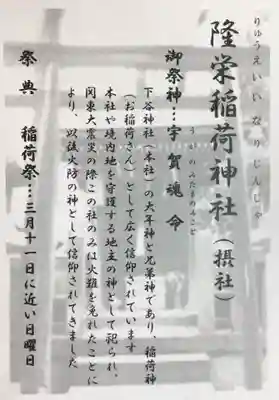 りゅうえいいなりじんじゃ
隆栄稲荷神社（摂社）
御祭神…宇賀魂命
うかのみたまのみこと
下谷神社（本社）の大年神と兄弟神であり、稲荷神
（お稲荷さん）として広く信仰されています
本社や境内地を守護する地主の神として祀られ、
関東大震災の際この社のみは火難を免れたことに
より、以後火防の神として信仰されてきました
祭典　稲荷祭…三月十一日に近い日曜日